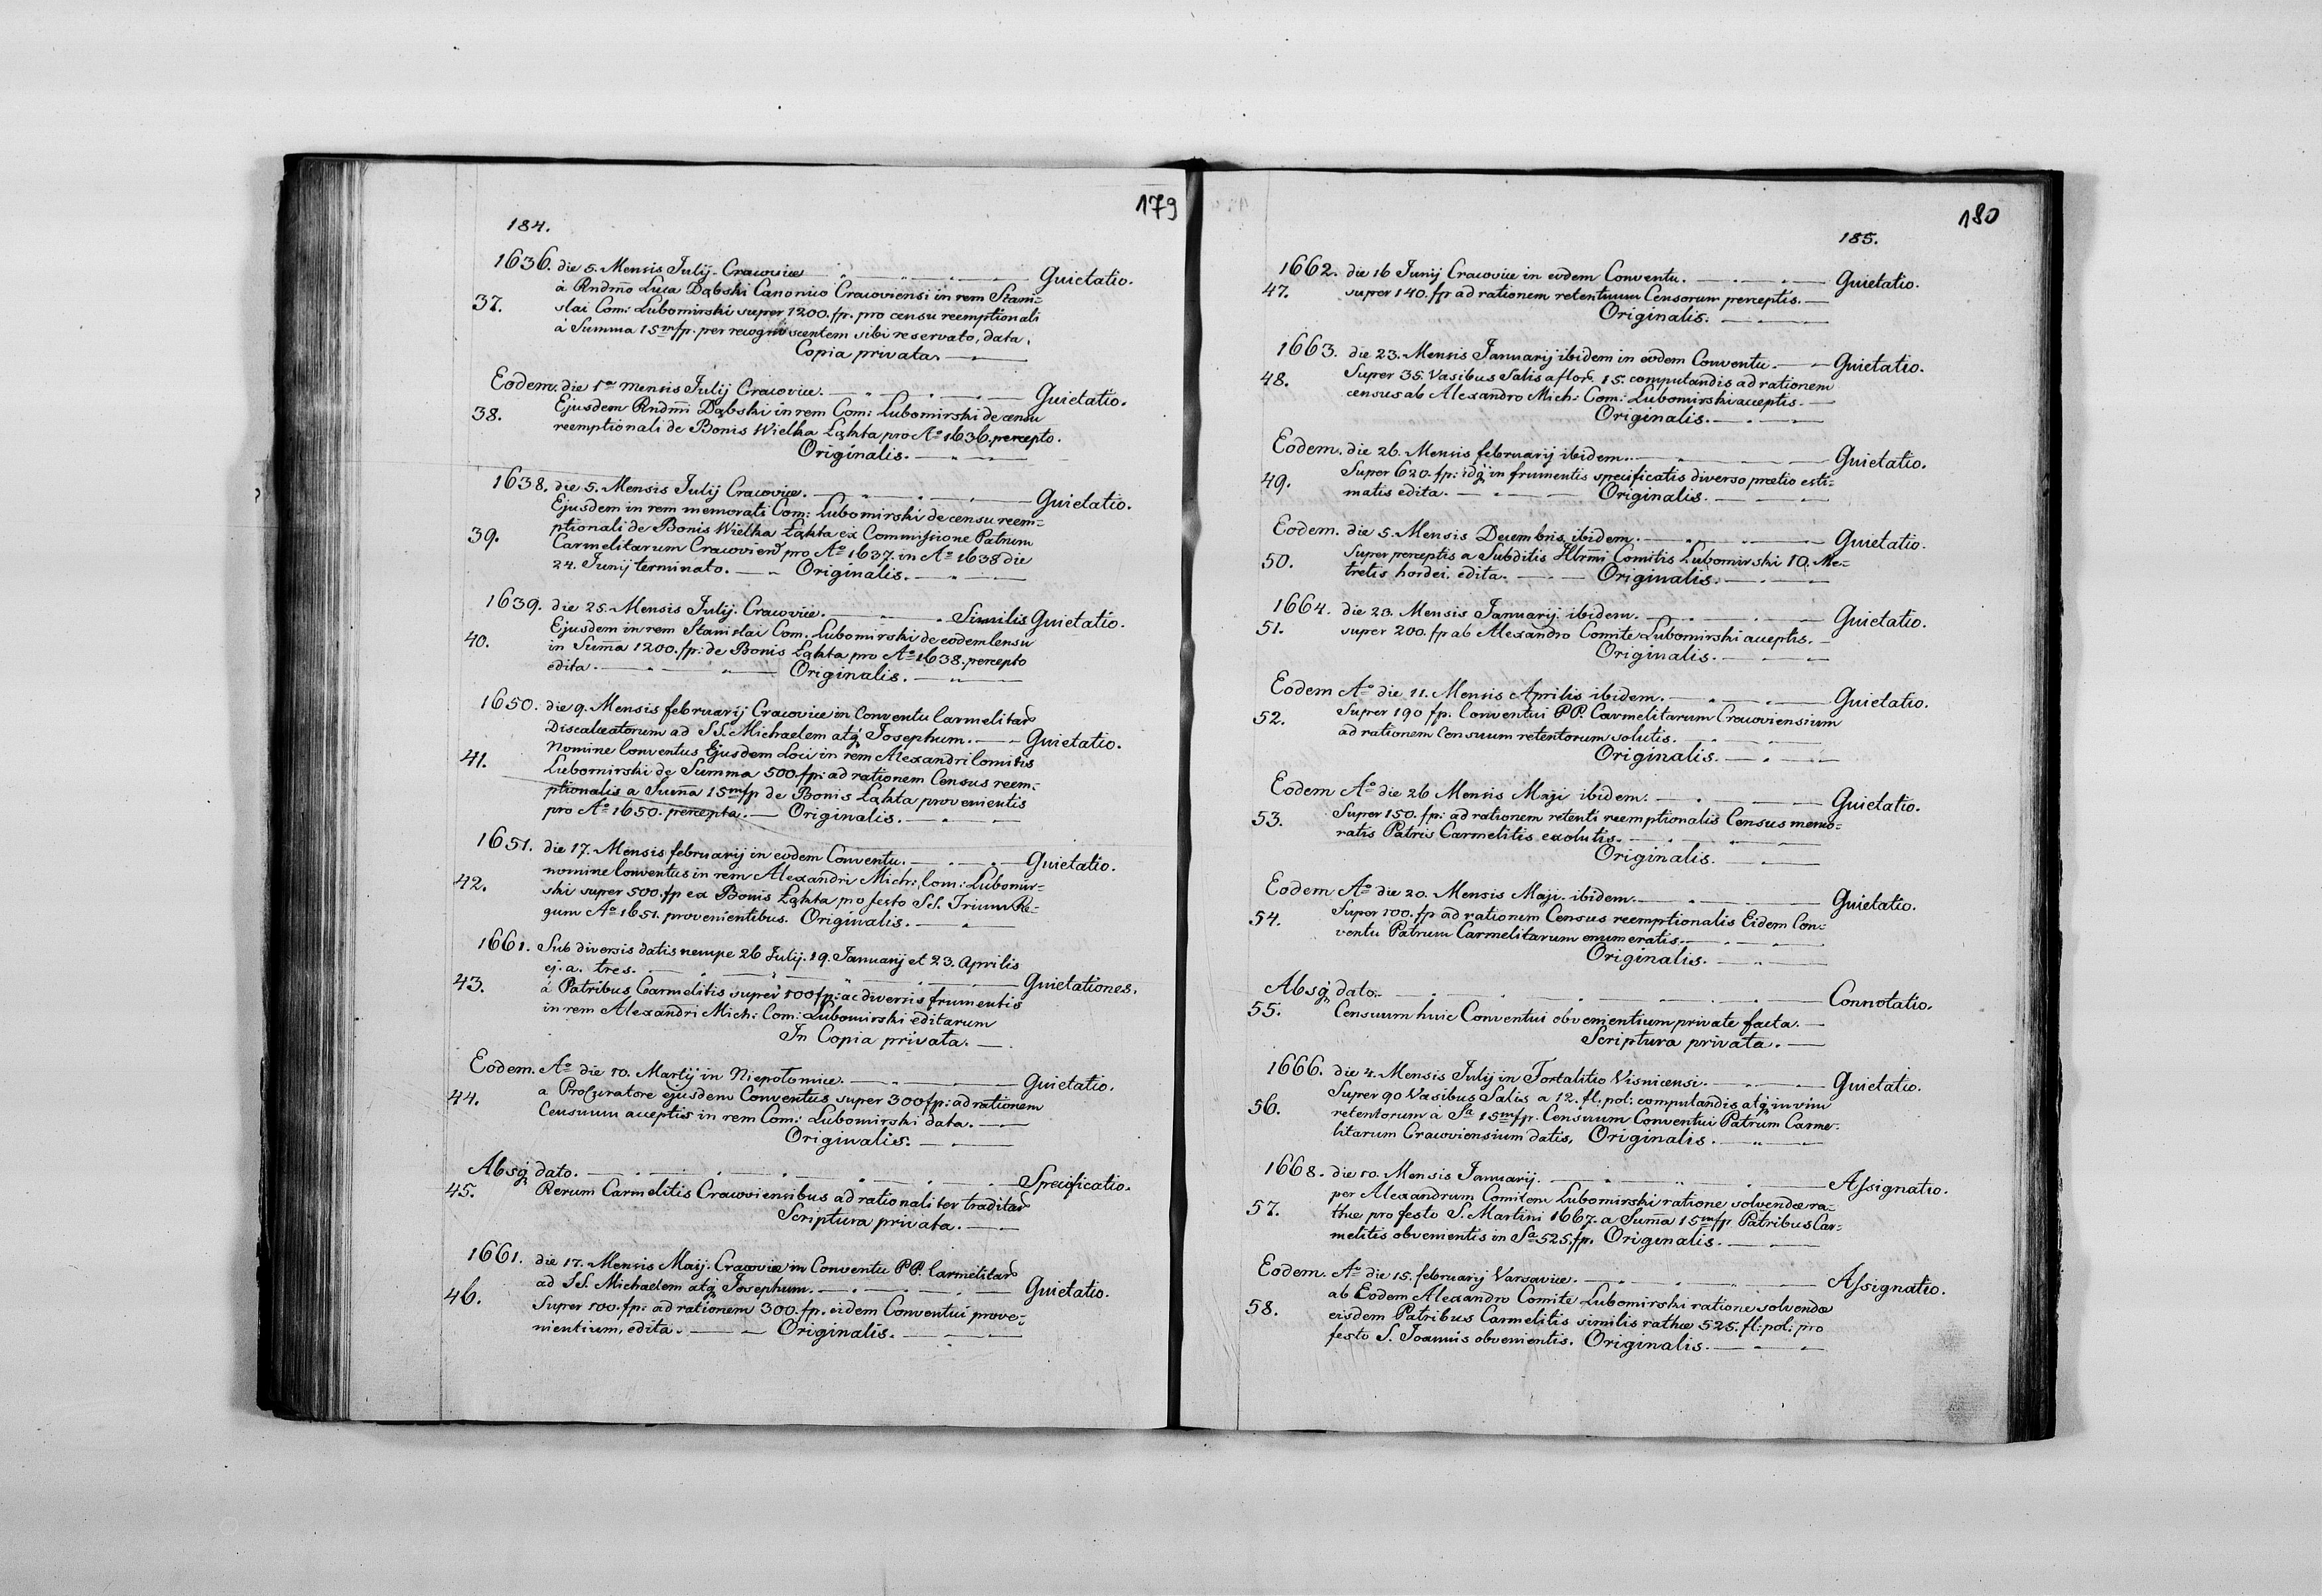 179
184.
1636. die 5. Mensis Julij. Cracoviæ Quietatio.
à Rndmo Luca Dąbski Canonico Cracoviensi in rem Stani-
37. slai Com: Lubomirski super 1200. fp. pro censu reemptionali
à Summa 15m fp. per recognoscentem sibi reservato, data.
Copia privata.
Eodem. die 1a mensis Julij Cracoviæ. Quietatio.
Ejusdem Rndmi Dąbski in rem Com: Lubomirski de censu
38. reemptionali de Bonis Wielka Łąkta pro Ao 1636. percepto.
Originalis.
1638. die 5. Mensis Julij Cracoviæ. Quietatio.
Ejusdem in rem memorati Com: Lubomirski de censu reem-
ptionali de Bonis Wielka Łąkta ex Commissione Patrum
39. Carmelitarum Cracovien pro Ao 1637. in Ao 1638 die
24. Junij terminato. Originalis.
1639. die 25. Mensis Julij. Cracoviæ. Similis Quietatio.
Ejusdem in rem Stanislai Com. Lubomirski de eodem Censu
40. in Summa 1200. fp: de Bonis Łąkta pro Ao 1638. percepto
edita. Originalis.
1650. die 9. Mensis februarij Cracoviæ in Conventu Carmelitar
Discalceatorum ad SS. Michaelem atq Josephum. Quietatio.
41. Nomine Conventus Ejusdem Loci in rem Alexandri Comitis
Lubomirski de Summa 500 fp: ad rationem Census reem-
ptionalis a Summa 15m fp de Bonis Łąkta provenientis
pro Ao 1650. percepta. Originalis.
1651. die 17. Mensis februarij in eodem Conventu. Quietatio.
nomine Conventus in rem Alexandri Mich: Com: Lubomir-
42. ski super 500. fp ex Bonis Łąkta pro festo SS. Trium Re-
gum Ao 1651. provenientibus. Originalis.
1661. Sub diversis datis nempe 26 Julij. 19. Januarij et 23. Aprilis
ej. a. tres. Quietationes.
43. à Patribus Carmelitis super 500 fp: ac diversis frumentis
in rem Alexandri Mich: Com: Lubomirski editarum
In Copia privata.
Eodem. Ao die 10. Martij in Niepołomice. Quietatio.
44. a Procuratore ejusdem Conventus super 300 fp: ad rationem
Censuum acceptis in rem Com: Lubomirski data.
Originalis.
Absq dato. Specificatio.
45. Rerum Carmelitis Cracoviensibus ad rationaliter traditar
Scriptura privata.
1661. die 17. Mensis Maij. Cracoviæ in Conventu PP. Carmelitar
ad SS. Michaelem atq Josephum. Quietatio.
46. Super 100. fp: ad rationem 300. fp. eidem Conventui prove-
nientium, edita. Originalis.
180
185.
1662. die 16 Junij Cracoviæ in eodem Conventu. Quietatio.
47. super 140. fp ad rationem retentuum Censorum perceptis.
Originalis.
1663. die 23. Mensis Januarij ibidem in eodem Conventu. Quietatio.
48. Super 35. Vasibus Salis a flor. 15. computandis ad rationem
census ab Alexandro Mich: Com: Lubomirski acceptis.
Originalis.
Eodem. die 26. Mensis februarij ibidem. Quietatio.
49. Super 620. fp: idq in frumentis specificatis diverso prætio esti-
matis edita. Originalis.
Eodem. die 5. Mensis Decembris ibidem. Quietatio.
50. Super perceptis a Subditis Illrmi Comitis Lubomirski 10. Me-
tretis hordei. edita. Originalis.
1664. die 23. Mensis Januarij. ibidem. Quietatio.
51. super 200. fp ab Alexandro Comite Lubomirski acceptis.
Originalis.
Eodem Ao die 11. Mensis Aprilis ibidem. Quietatio.
52. Super 190 fp. Conventui PP. Carmelitarum Cracoviensium
ad rationem Censuum retentorum solutis.
Originalis.
Eodem Ao die 26 Mensis Maji ibidem. Quietatio.
53. Super 150. fp: ad rationem retenti reemptionalis Census memo-
ratis Patris Carmelitis exolutis.
Originalis.
Eodem Ao die 20. Mensis Maji. ibidem. Quietatio.
54. Super 100. fp ad rationem Census reemptionalis Eidem Con-
ventu Patrum Carmelitarum enumeratis.
Originalis.
Absq dato. Connotatio.
55. Censuum huic Conventui obvenientium private facta.
Scriptura privata.
1666. die 4. Mensis Julij in Fortalitio Visnicensi. Quietatio.
56. Super 90 Vasibus Salis a 12. fl: pol: computandis atq in vim
retentorum a Sa 15m fp. Censuum Conventui Patrum Carme-
litarum Cracoviensium datis, Originalis.
1668. die 10. Mensis Januarij. Assignatio.
57. per Alexandrum Comitem Lubomirski ratione solvendæ ra-
thæ pro festo S. Martini 1667. a Summa 15m fp Patribus Car-
melitis obvenientis in Sa 525. fp. Originalis.
Eodem. Ao die 15. februarij Varsaviæ. Assignatio.
58. ab Eodem Alexandro Comite Lubomirski ratione solvendæ
eisdem Patribus Carmelitis similis rathæ 525. fl: pol: pro
festo S. Joannis obvenientis. Originalis.